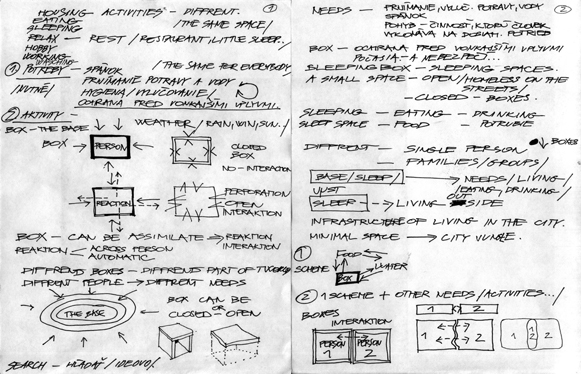 1
HOUSING ACTIVITIES - DIFFRENT.
EATING /THE SAME SPACE/
SLEEPING
RELAX - REST / RESTAURANT, LITTLE SLEEP..
HOBBY
WORKING
WASCHING
① POTREBY - SPÁNOK /THE SAME FOR EVERYBODY/
/NUTNÉ/ PRIJÍMANIE POTRAVY A VODY
HYGIENA / VYLUČOVANIE /
OCHRANA PRED VONKAJŠÍMI VPLYVMI
② AKTIVITY -
BOX - THE BASE WEATHER / RAIN, WIND, SUN../
BOX PERSON CLOSED
BOX
NO - INTERACTION
REACTION PERFORATION
OPEN
INTERAKTION
BOX - CAN BE ASSIMILATE REAKTION
INTERAKTION
REAKTION ACROSS PERSON
AUTOMATIC
DIFFRENDS BOXES - DIFFRENDS PART OF
DIFFRENT PEOPLE DIFFRENT NEEDS
THE BASE BOX CAN BE
OR
CLOSED - OPEN
SEARCH - HĽADAŤ
2
NEEDS - PRIJÍMANIE, VYLUČ. POTRAVY, VODY
SPÁNOK
POHYB - ČINNOSŤ, KTORÚ ČLOVEK
VYKONÁVA NA DOSIAH. POTRIEB
BOX - OCHRANA PRED VONKAJŠÍMI VPLYVMI
POČASIA A NEBEZPEČ...
SLEEPING BOX - SLEEPING SPACES.
A SMALL SPACE - OPEN / HOMELESS ON THE
STREETS/
- CLOSED - BOXES.
SLEEPING - EATING - DRINKING
SLEEP SPACE - FOOD - POTRUBIE
BOXES
DIFFRENT - SINGLE PERSON
- FAMILIES / GROUPS /
BASE / SLEEP / NEEDS / LIVING /
/EATING, DRINKING/
SLEEP LIVING OUT SIDE
INFRASTRUCTURE OF LIVING IN THE CITY.
MINIMAL SPACE CITY JUNGLE.
① FOOD
SCHEME WATER
BOX
② 1 SCHEME + OTHER NEEDS / ACTIVITIES.../
BOXES
INTERAKTION
PERSON 1 PERSON 2
1 2
1 2
1 1 2 2